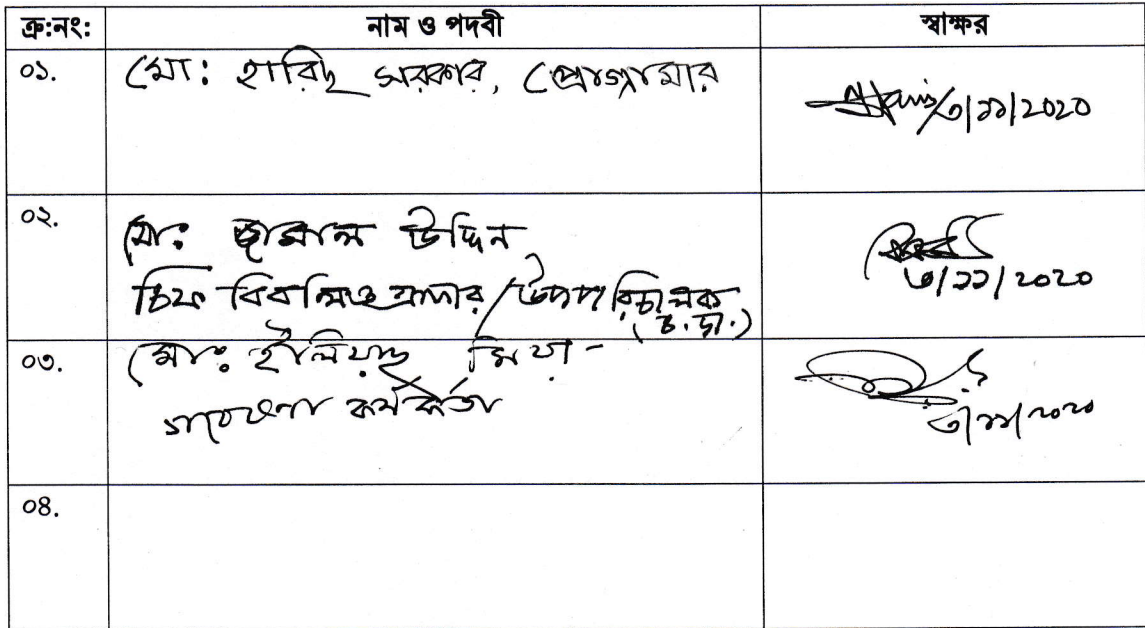 ক্র:নং: নাম ও পদবী স্বাক্ষর
০১. মো: হারিছ সরকার, প্রোগ্রামার
৩/১১/2020
০২. মো: জামাল উদ্দিন
চিফ বিবলিওগ্রাফার/উপপরিচালক
(চ. দা.)
৩/১১/২০২০
০৩. মো: ইলিয়াছ মিয়া
গবেষণা কর্মকর্তা
৩/১১/২০২০
০৪.